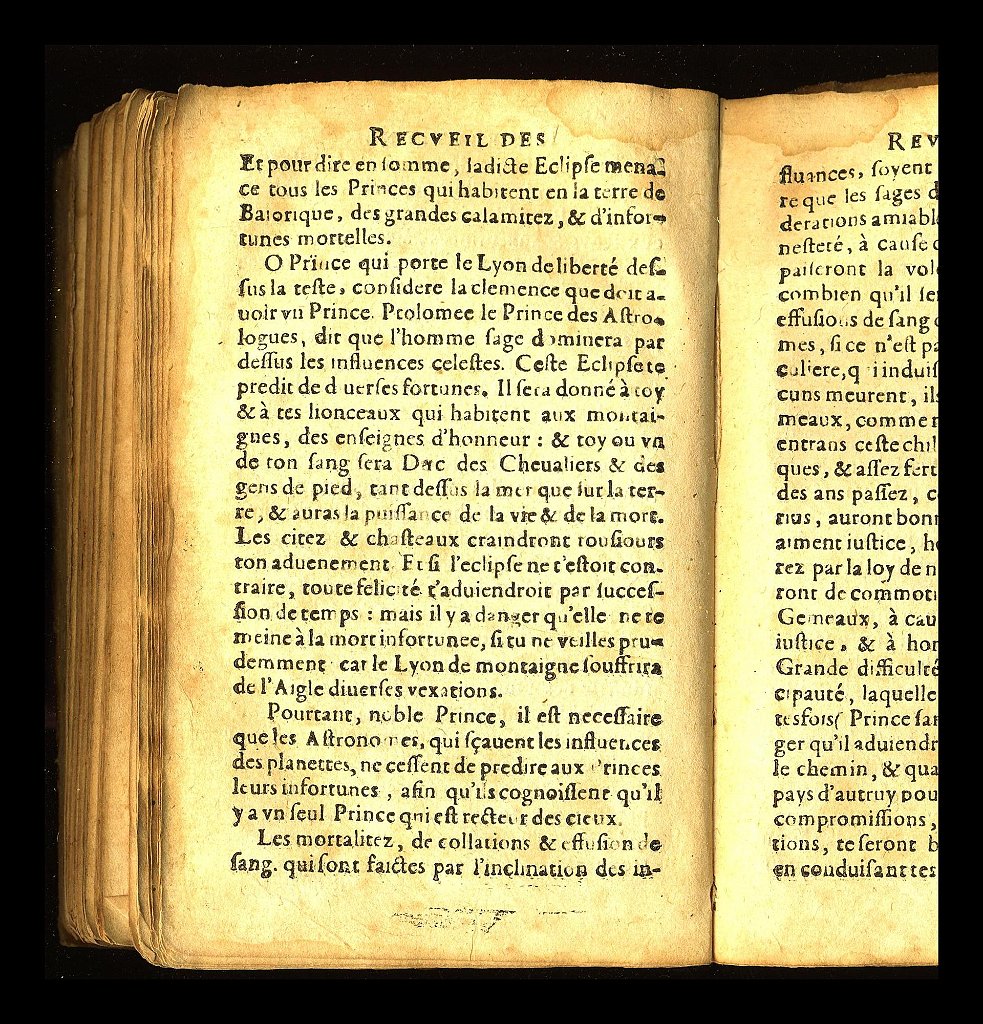 RECVEIL DES
Et pour dire en somme, ladicte Eclipse mena-
ce tous les Princes qui habitent en la terre de
Baiorique, des grandes calamitez, & d'infor-
tunes mortelles.
O Prince qui porte le Lyon de liberté des-
sus la teste, considere la clemence que doit a-
uoir vn Prince. Ptolomee le Prince des Astro-
logues, dit que l'homme sage dominera par
dessus les influences celestes. Ceste Eclipse te
predit de diuerses fortunes. Il sera donné à toy
& à tes lionceaux qui habitent aux montai-
gnes, des enseignes d'honneur : & toy ou vn
de ton sang sera Duc des Cheualiers & des
gens de pied, tant dessus la mer que sur la ter-
re, & auras la puissance de la vie & de la mort.
Les citez & chasteaux craindront tousiours
ton aduenement. Et si l'eclipse ne t'estoit con-
traire, toute felicité t'aduiendroit par succes-
sion de temps : mais il y a danger qu'elle ne te
meine à la mort infortunee, si tu ne veilles pru-
demment car le Lyon de montaigne souffrira
de l'Aigle diuerses vexations.
Pourtant, noble Prince, il est necessaire
que les Astronomes, qui sçauent les influences
des planettes, ne cessent de predire aux Princes
leurs infortunes, afin qu'ils cognoissent qu'il
y a vn seul Prince qui est recteur des cieux.
Les mortalitez, de collations & effusion de
sang. qui sont faictes par l'inclination des in-
REV
fluances, soyent
re que les sages d
derations amiabl
nesteté, à cause d
paiseront la vol
combien qu'il se
effusions de sang
mes, si ce n'est pa
culiere, qui induis
cuns meurent, ils
meaux, comme
entrans ceste chil
ques, & assez fert
des ans passez, c
rius, auront bon
aiment iustice, h
rez par la loy de n
ront de commoti
Gemeaux, à cau
iustice, & à hon
Grande difficulté
cipauté, laquelle
tesfois( Prince san
ger qu'il aduiendr
le chemin, & qua
pays d'autruy pou
compromissions,
tions, te seront b
en conduisant tes